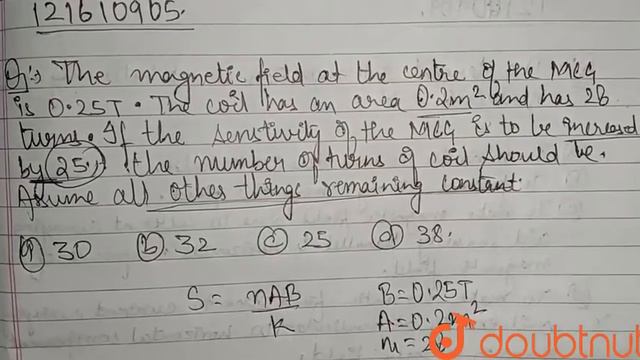 121610905.
Q:→ The magnetic field at the centre of the MCG
is 0.25T. The coil has an area 0.2m² and has 28
turns. If the sensitivity of the MCG is to be increased
by 25% the number of turns of coil should be.
Assume all other things remaining constant.
(a) 30 (b) 32 (c) 25 (d) 38.
S = nAB/K
B = 0.25T
A = 0.2m²
n = 28
doubtnut